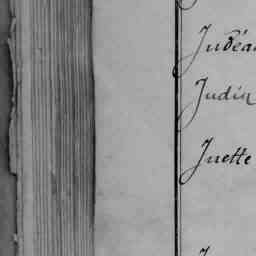 Judéa
Judin
Juette